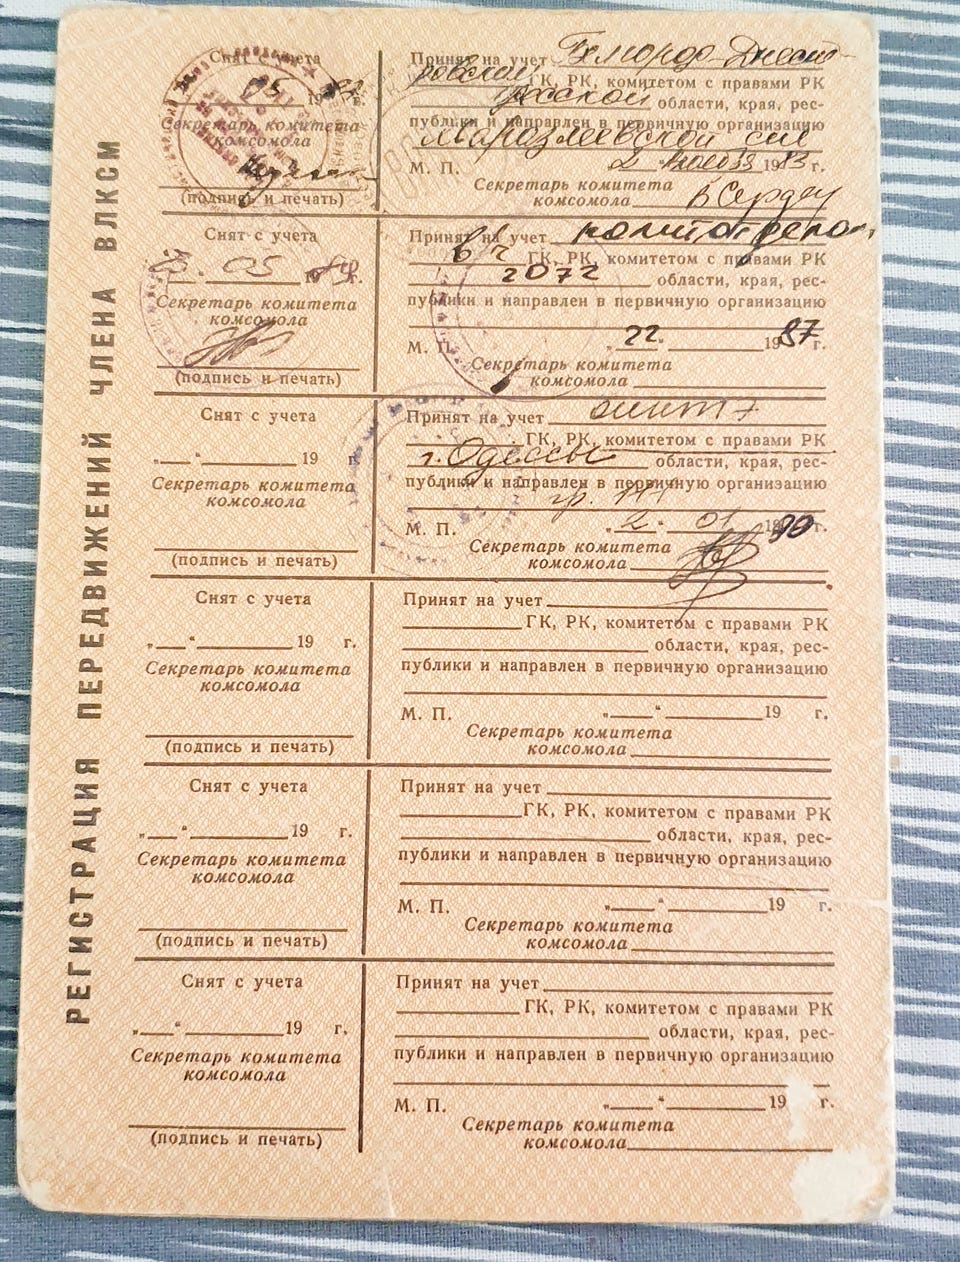 РЕГИСТРАЦИЯ ПЕРЕДВИЖЕНИЙ ЧЛЕНА ВЛКСМ
Снят с учета
05 19 г.
Секретарь комитета
комсомола
(подпись и печать)
Принят на учет Белгород-Днест-
ровским ГК, РК, комитетом с правами РК
Одесской области, края, рес-
публики и направлен в первичную организацию
М. П. „2“ 1983 г.
Секретарь комитета
комсомола
Снят с учета
05 г.
Секретарь комитета
комсомола
(подпись и печать)
Принят на учет политотделом
в/ч ГК, РК, комитетом с правами РК
2072 области, края, рес-
публики и направлен в первичную организацию
М. П. „22“ 1987 г.
Секретарь комитета
комсомола
Снят с учета
„ “ 19 г.
Секретарь комитета
комсомола
(подпись и печать)
Принят на учет
ГК, РК, комитетом с правами РК
г. Одессы области, края, рес-
публики и направлен в первичную организацию
гр.
М. П. „2“ 01 1990 г.
Секретарь комитета
комсомола
Снят с учета
„ “ 19 г.
Секретарь комитета
комсомола
(подпись и печать)
Принят на учет
ГК, РК, комитетом с правами РК
области, края, рес-
публики и направлен в первичную организацию
М. П. „ “ 19 г.
Секретарь комитета
комсомола
Снят с учета
„ “ 19 г.
Секретарь комитета
комсомола
(подпись и печать)
Принят на учет
ГК, РК, комитетом с правами РК
области, края, рес-
публики и направлен в первичную организацию
М. П. „ “ 19 г.
Секретарь комитета
комсомола
Снят с учета
„ “ 19 г.
Секретарь комитета
комсомола
(подпись и печать)
Принят на учет
ГК, РК, комитетом с правами РК
области, края, рес-
публики и направлен в первичную организацию
М. П. „ “ 19 г.
Секретарь комитета
комсомола